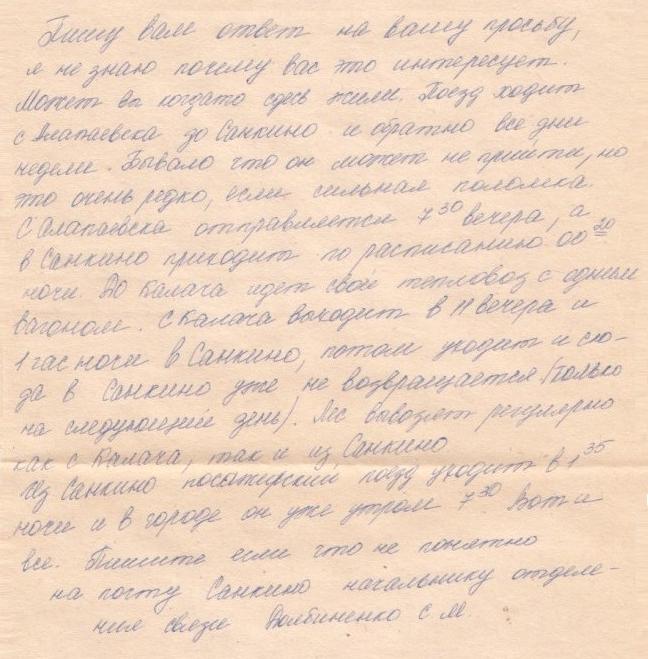 Пишу вам ответ на вашу просьбу,
я не знаю почему вас это интересует.
Может вы когдато здесь жили. Поезд ходит
с Алапаевска до Санкино и обратно все дни
недели. Бывало что он может не прийти, но
это очень редко, если сильная поломка.
С Алапаевска отправляется 7 30 вечера, а
в Санкино приходит по расписанию 00 20
ночи. До Калача идет свой тепловоз с одним
вагоном. С Калача выходит в 11 вечера и
1 час ночи в Санкино, потом уходит и сю-
да в Санкино уже не возвращается (только
на следующий день). Лес вывозят регулярно
как с Калача, так и из Санкино
Из Санкино посажирский поезд уходит в 1 35
ночи и в городе он уже утром 7 30 Вот и
все. Пишите если что не понятно
на почту Санкино начальнику отделе-
ния связи С М.